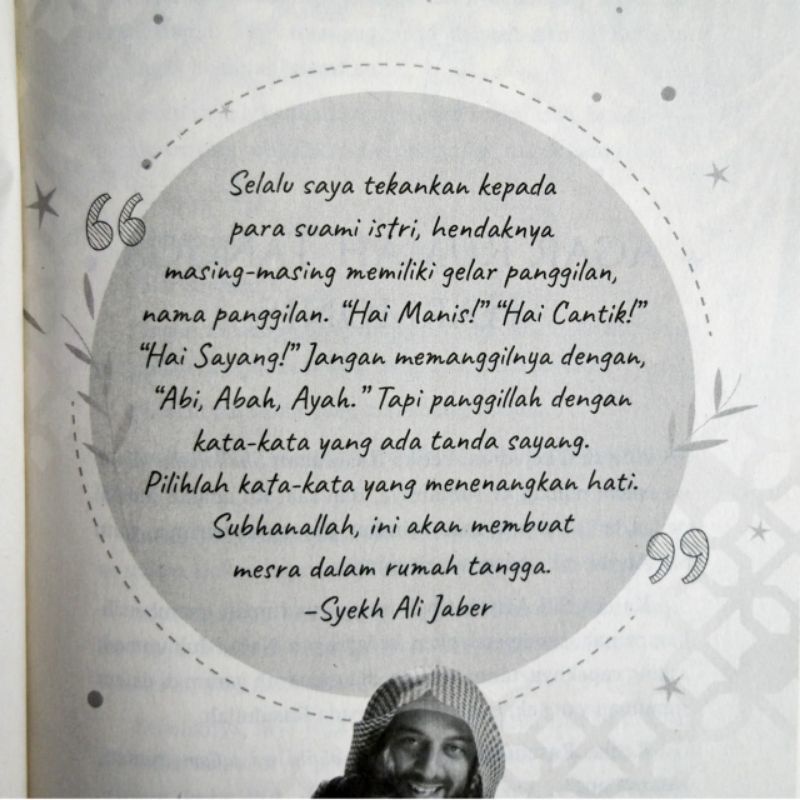 Selalu saya tekankan kepada
para suami istri, hendaknya
masing-masing memiliki gelar panggilan,
nama panggilan. “Hai Manis!” “Hai Cantik!”
“Hai Sayang!” Jangan memanggilnya dengan,
“Abi, Abah, Ayah.” Tapi panggillah dengan
kata-kata yang ada tanda sayang.
Pilihlah kata-kata yang menenangkan hati.
Subhanallah, ini akan membuat
mesra dalam rumah tangga.
–Syekh Ali Jaber